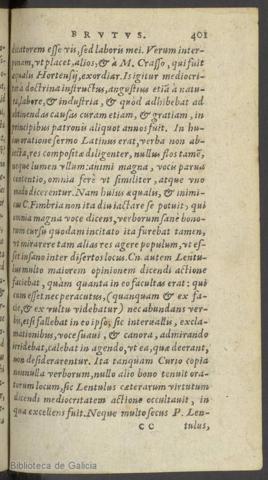 BRVTVS. 401
dicatorem esse vis, sed laboris mei. Verum inter-
ponam, vt placet, alios; & à M. Crasso, qui fuit
æqualis Hortensij, exordiar. Is igitur mediocri-
ter à doctrina instructus, angustius etiã à natu-
ra, labore, & industria, & quod adhibebat ad
obtinendas causas curam etiam, & gratiam, in
principibus patronis aliquot annos fuit. In hu-
ius oratione sermo Latinus erat, verba non ab-
iecta, res compositæ diligenter, nullus flos tamẽ,
neque lumen vllum: animi magna, vocis parua
contentio, omnia ferè vt similiter, atque vno
modo dicerentur. Nam huius æqualis, & inimi-
cus C. Fimbria non ita diu iactare se potuit, qui
omnia magna voce dicens, verborum sanè bono-
rum cursu quodam incitato ita furebat tamen,
vt mirarere tam alias res agere populum, vt es-
set insano inter disertos locus. Cn. autem Lentu-
lus multo maiorem opinionem dicendi actione
faciebat, quam quanta in eo facultas erat: qui
cum esset nec peracutus, (quanquam & ex fa-
cie, & ex vultu videbatur) nec abundans ver-
bis, etsi fallebat in eo ipso, sic interuallis, excla-
mationibus, voce suaui, & canora, admirando
irridebat, calebat in agendo, vt ea, quæ deerant,
non desiderarentur. Ita tanquam Curio copia
nonnulla verborum, nullo alio bono tenuit ora-
torum locum, sic Lentulus cæterarum virtutum
dicendi mediocritatem actione occultauit, in
qua excellens fuit. Neque multo secus P. Len-
CC tulus,
Biblioteca de Galicia